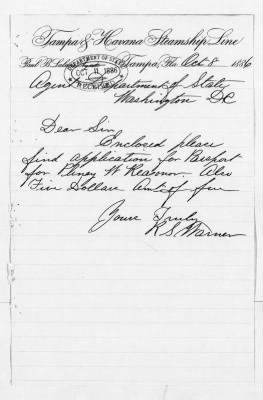 Tampa & Havana Steamship Line
Tampa, Fla Oct 8 1886
DEPARTMENT OF STATE
OCT 11 1886
RECEIVED
Agent Department of State
Washington DC
Dear Sir
Enclosed please
find application for Passport
for Pliney W Reasoner. Also
Five Dollars amt of fee
Yours Truly
R S Warner